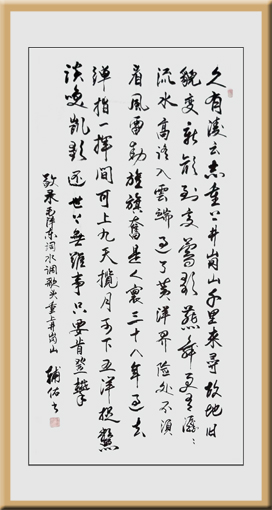 久有凌云志重上井岗山千里来寻故地旧
貌变新颜到处莺歌燕舞更有潺潺
流水高路入云端过了黄洋界险处不须
看风雷动旌旗奋是人寰三十八年过去
弹指一挥间可上九天揽月可下五洋捉鳖
谈笑凯歌还世上无难事只要肯登攀
敬录毛泽东词水调歌头重上井岗山
辅佑书